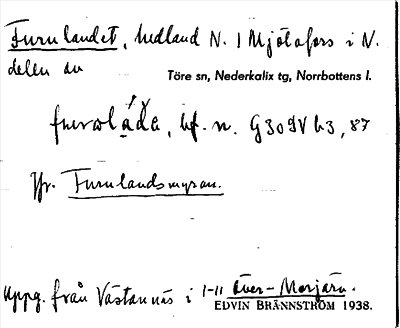 Furulandet, hedland N. I Mjölafors i N.
delen av Töre sn, Nederkalix tg, Norrbottens l.
bf. n. G 30 9V b3, 87
Jfr. Furulandsmyran.
Uppg. från Västannäs i 1-11 Över-Morjärv.
EDVIN BRÄNNSTRÖM 1938.